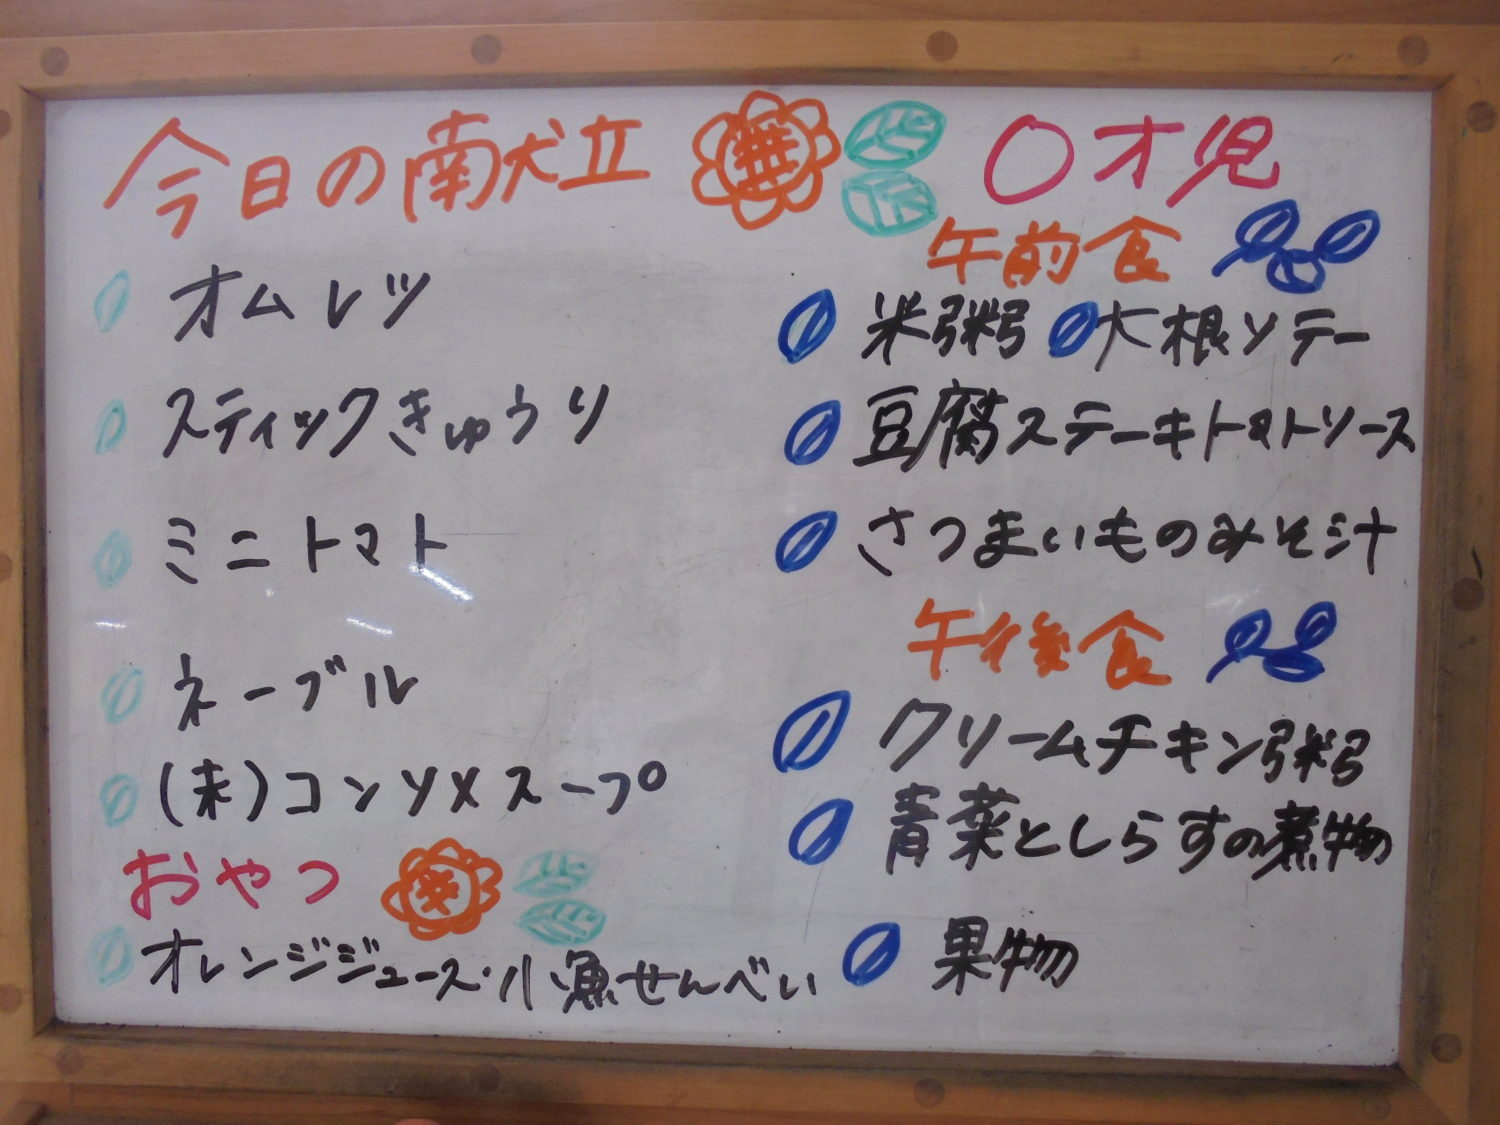 今日の献立
オムレツ
スティックきゅうり
ミニトマト
ネーブル
(未)コンソメスープ
おやつ
オレンジジュース・小魚せんべい
〇才児
午前食
米粥 大根ソテー
豆腐ステーキトマトソース
さつまいものみそ汁
午後食
クリームチキン粥
青菜としらすの煮物
果物